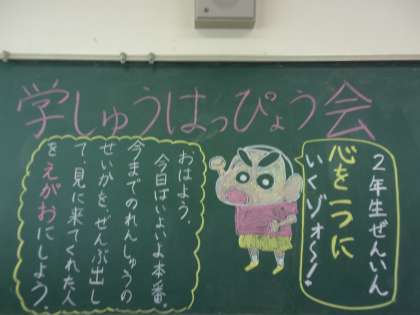 学しゅうはっぴょう会
2年生ぜんいん
心を一つに
いくゾォ〜！
おはよう。
今日はいよいよ本番。
今までのれんしゅうの
せいかをぜんぶ出し
て、見に来てくれた人
を えがおにしよう。